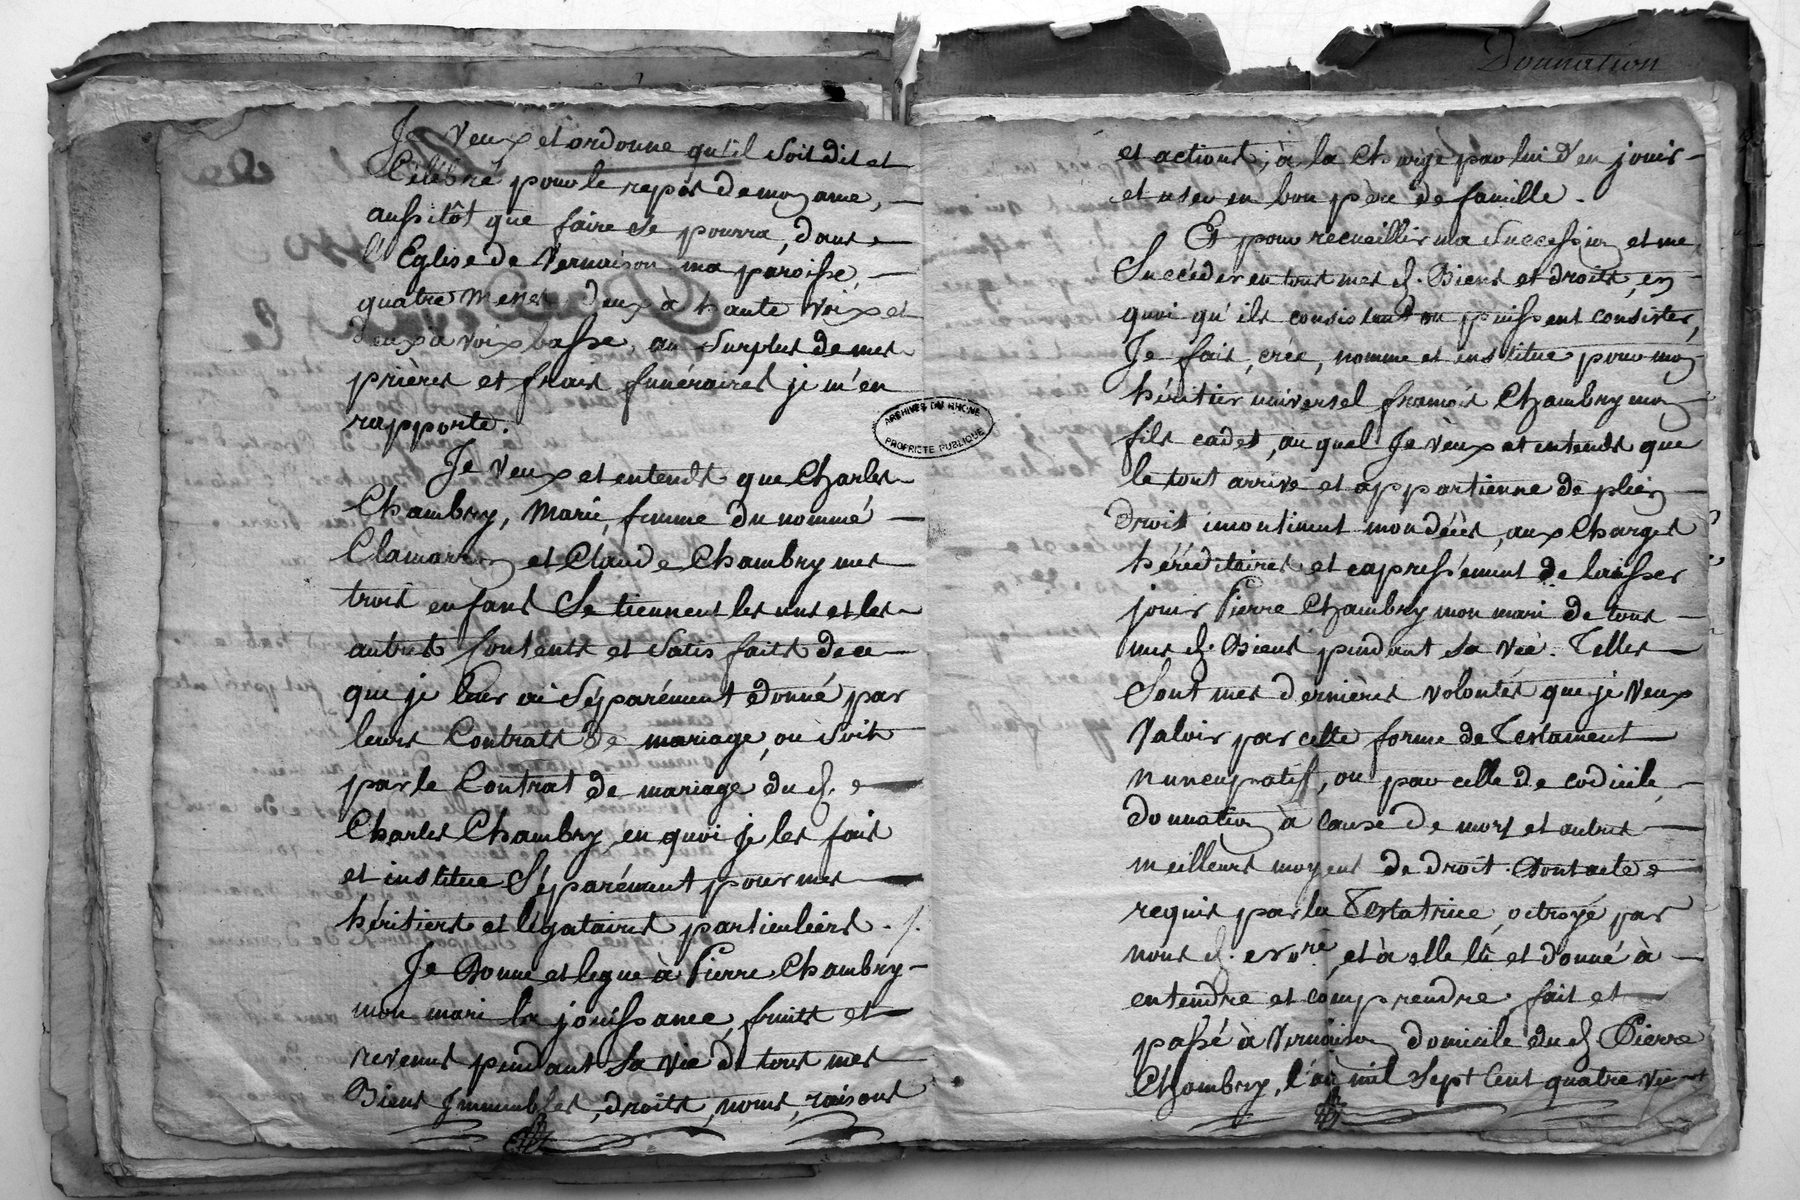 Je Veux et ordonne qu'il soit dit et
Célébré pour le repos de moy ame,
aussitôt que faire se pourra, dans
l'Eglise de Vernaison ma paroisse,
quatre Messes deux à haute Voix et
deux à voix basse, au surplus de mes
prières et frais funéraires je m'en
rapporte.
Je Veux et entends que Charles
Chambry, Marie, femme du nommé
et Claude Chambry mes
trois enfans Se tiennent les uns et les
autres Contents et satisfaits de ce
que je leur ai Séparément donné par
leurs Contrats de mariage, ou soit
par le Contrat de mariage dud.
Charles Chambry, en quoi je les fais
et institue Séparément pour mes
héritiers et légataires particuliers ./.
Je Donne et legue à Pierre Chambry
mon mari la jouissance, fruits et
revenus pendant sa vie de tous mes
Biens Immeubles, droits, noms, raisons
Donnation
et actions, à la Charge par lui d'en jouir
et user en bon père de famille.
Et pour recueillir ma succession et me
Succéder en tous mes d. Biens et droits, en
quoi qu'ils consistent ou puissent consister,
Je fais, crée, nomme et institue pour moy
héritier universel françois Chambry moy
fils cadet, auquel Je veux et entends que
le tout arrive et appartienne de plein
Droit incontinent mon décès, aux Charges
héréditaires et expressément de laisser
jouir Pierre Chambry mon mari de tous
mes d. Biens pendant sa vie. Telles
Sont mes dernières volontés que je Veux
Valoir par cette forme de Testament
nuncupatif, ou par celle de codicile,
donnation à cause de mort et autres
meilleurs moyens de droit. Dont acte
requis par la Testatrice, octroyé par
nous d. et à elle lû et donné à
entendre et comprendre, fait et
passé à Vernaison domicile dud. Pierre
Chambry, l'an mil sept Cent quatre vingt
ARCHIVES DU RHONE
PROPRIETE PUBLIQUE